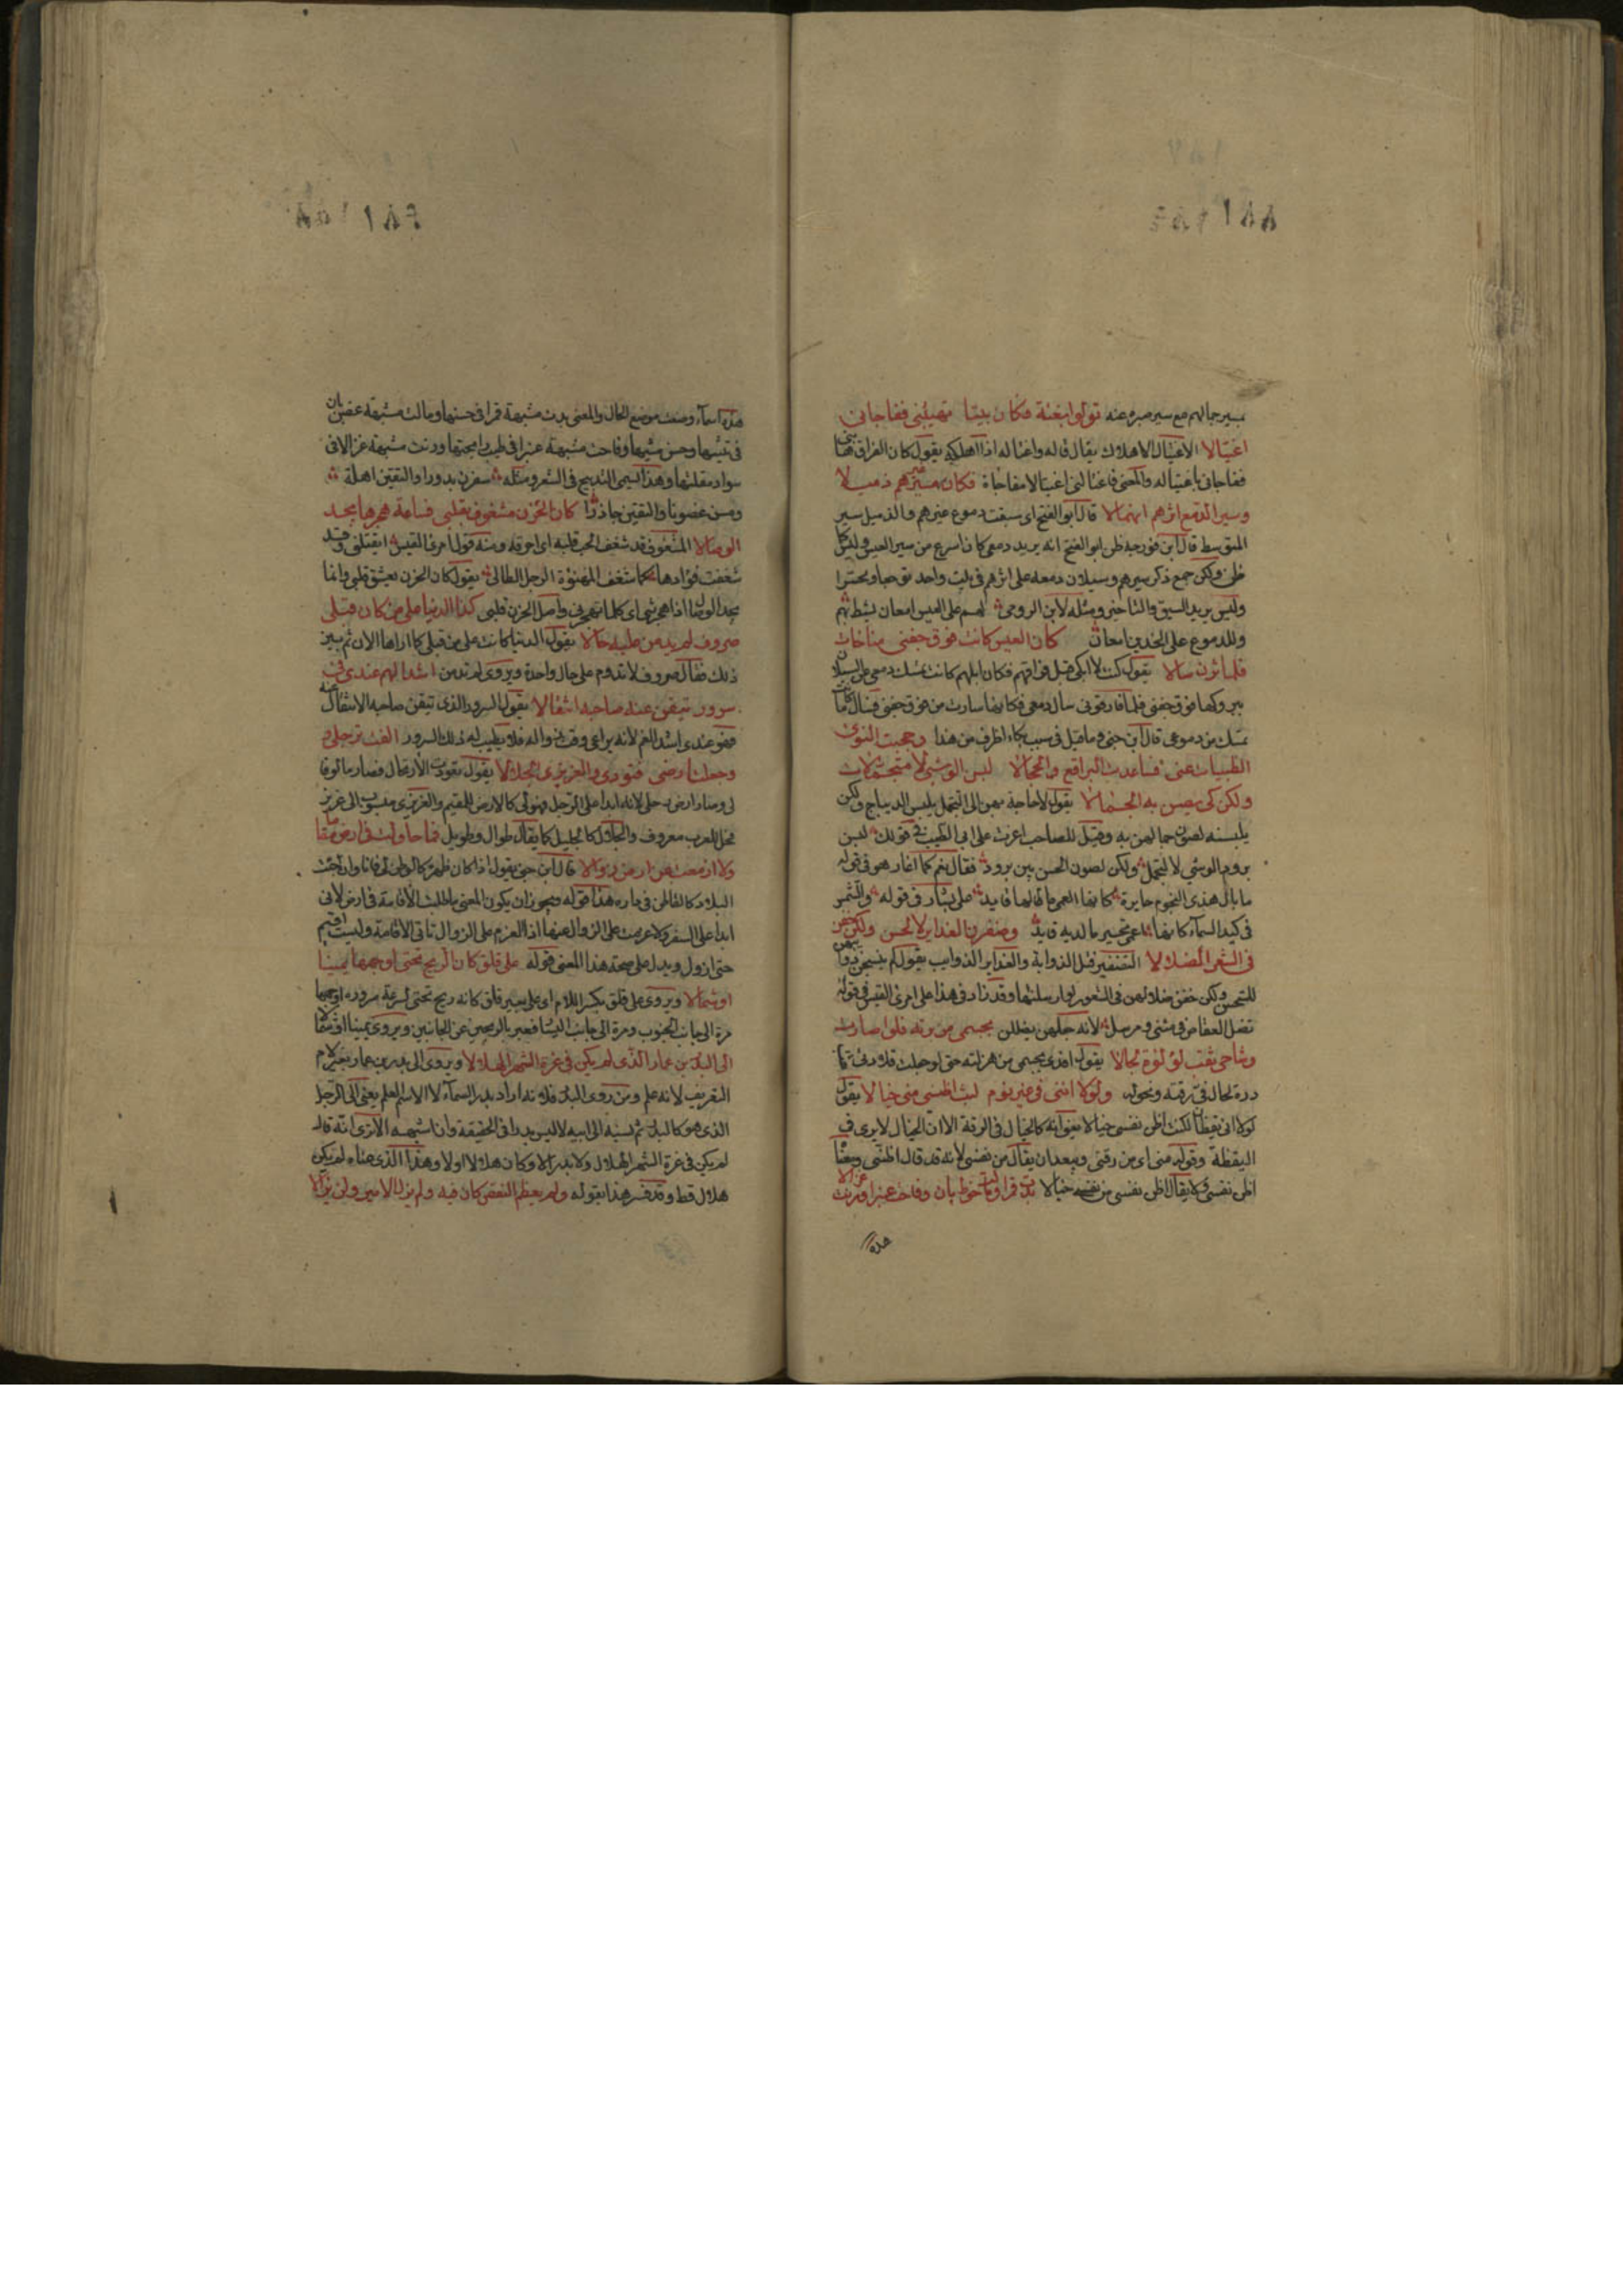 بسير جالهم مع سير صبره عنه تولوا بغتة فكان بينا تهيبني ففاجاني
اغتيالا الاغتيال الاهلاك يقال غاله واغتاله اذا اهلكه يقول كان الفراق هابني
ففاجاني باغتياله والمعنى فاغتالني اغتيالا مفاجاة فكان مسير عيسهم ذميلا
وسير الدمع اثرهم انهمالا قال ابو الفتح اي سبقت دموعي عيرهم والذميل سير
المتوسط قال ابن فورجة ظن ابو الفتح انه يريد دمعي كان اسرع من سير العيس وليس كما
ظن ولكن جمع ذكر سيرهم وسيلان دمعه على اثرهم في بيت واحد توجعا وتحسرا
وليس يريد السبق والتاخر ومثله لابن الرومي لهم على العيس امعان يشط بهم
وللدموع على الخدين امعان كان العيس كانت فوق جفني مناخات
فلما ثرن سالا يقول كنت لا ابكي قبل فراقهم فكان ابلهم كانت تمسك دمعي عن السيلان
ببروكها فوق جفني فلما فارقوني سال دمعي فكانها سارت من فوق جفني فسال ما كانت
تمسك من دموعي قال ابن جني وما قيل في سبب بكاء اظرف من هذا وحجبت النوى
الظبيات عني فساعدت البراقع والحجالا لبسن الوشي لا متجملات
ولكن كي يصن به الجمالا يقول لا حاجة بهن الى التجمل بلبس الديباج ولكن
يلبسنه لصون جمالهن به وقيل للصاحب اغرت على ابي الطيب في قولك لبسن
برود الوشي لا لتجمل ولكن لصون الحسن بين برود فقال نعم كما اغار هو في قوله
ما بال هذي النجوم حايرة كانها العمي ما لها قايد على بشار في قوله والشمس
في كبد السماء كانها اعمى تحير ما لديه قايد وضفرن الغداير لا لحسن ولكن خفن
في الشعر الضلالا التضفير فتل الذوابة والغداير الذوايب يقول لم ينسجن ذوايبهن
للتحسن ولكن خفن ضلالهن في الشعور لو ارسلنها وقد زاد في هذا على امرئ القيس في قوله
تضل العقاص في مثنى ومرسل لانه جعلهن يضللن بجسمي من برته فلو اصارت
وشاحي ثقب لؤلؤة لجالا يقول افدي بجسمي من هزلته حتى لو جعلت قلادتي ثقب
درة لجال في رقته ونحوله ولولا انني في غير نوم لبت اظنني مني خيالا يقول
لولا اني يقظان لكنت اظن نفسي خيالا يعني انه كالخيال في الرقة الا ان الخيال لا يرى في
اليقظة وقوله مني اي من رقتي ويبعد ان يقال من نفسي لانه قد قال اظنني ومعناه
اظن نفسي ولا يقال اظن نفسي من نفسي خيالا بدت قمرا ومالت خوط بان وفاحت عنبرا ورنت غزالا
هذه
هذه اسماء وضعت موضع الحال والمعنى بدت مشبهة قمرا في حسنها ومالت مشبهة غصن بان
في تثنيها وحسن مشيها وفاحت مشبهة عنبرا في طيب رايحتها ورنت مشبهة غزالا في
سواد مقلتها وهذا يسمى التدبيج في الشعر ومثله سفرن بدورا وانتقبن اهلة
ومسن غصونا والتفتن جاذرا كان الحزن مشغوف بقلبي فساعة هجرها يجد
الوصالا المشغوف قد شغف الحب قلبه اي احرقه ومنه قول امرئ القيس ايقتلني وقد
شغفت فؤادها كما شغف المهنوءة الرجل الطالي يقول كان الحزن يعشق قلبي وانما
يجد الوصال اذا هجرتني اي كلما تهجرني واصل الحزن قلبي كذا الدنيا على من كان قبلي
صروف لم يدمن عليه حالا يقول الدنيا كانت على من قبلي كما اراها الان ثم بين
ذلك فقال صروف لا تدوم على حال واحدة ويروى لم تدمن اشد الهم عندي في
سرور تيقن عنه صاحبه انتقالا يقول السرور الذي تيقن صاحبه الانتقال عنه
فهو عندي اشد الغم لانه يراعي وقت زواله فلا يطيب له ذلك السرور الفت ترحلي و
وجعلت ارضي قتودي والغريري الجلالا يقول تعودت الارتحال فصار مالوفا
لي وصار ارض رحلي لانه ابدا على الرحل فهو لي كالارض للمقيم والغريري منسوب الى غرير
فحل للعرب معروف والجلال كالجليل كما يقال طوال وطويل فما حاولت في ارض مقاما
ولا ازمعت عن ارض زوالا قال ابن جني يقول اذا كان ظهره كالوطن لي فانا وان جبت
البلاد كالقاطن في داره هذا قوله ويجوز ان يكون المعنى ما طلبت الاقامة في ارض لاني
ابدا على السفر ولا عزمت على الزوال عنها اذ العزم على الزوال تاتي الاقامة ولست اقيم
حتى ازول ويدل على صحة هذا المعنى قوله على قلق كان الريح تحتي اوجهها يمينا
او شمالا ويروى على قلق بكسر اللام اي على بعير قلق كانه ريح تحتي لسرعة مروره اوجهها
مرة الى جانب الجنوب ومرة الى جانب الشمال فعبر بالريحين عن الجانبين ويروى يمينا او شمالا
الى البدر بن عمار الذي لم يكن في غرة الشهر الهلالا ويروى الى بدر بن عمار بغير لام
التعريف لانه علم ومن روى البدر فلانه اراد بدر السماء لا الاسم العلم يعني الى الرجل
الذي هو كالبدر ثم نسبه الى ابيه لا ليس بدرا في الحقيقة وان اشبهه الا ترى انه قال
لم يكن في غرة الشهر الهلال ولا بدر الا وكان هلالا اولا وهذا الذي عناه لم يكن
هلال قط وقد فسر هذا بقوله ولم يعظم لنقص كان فيه ولم يزل الامير ولن يزالا